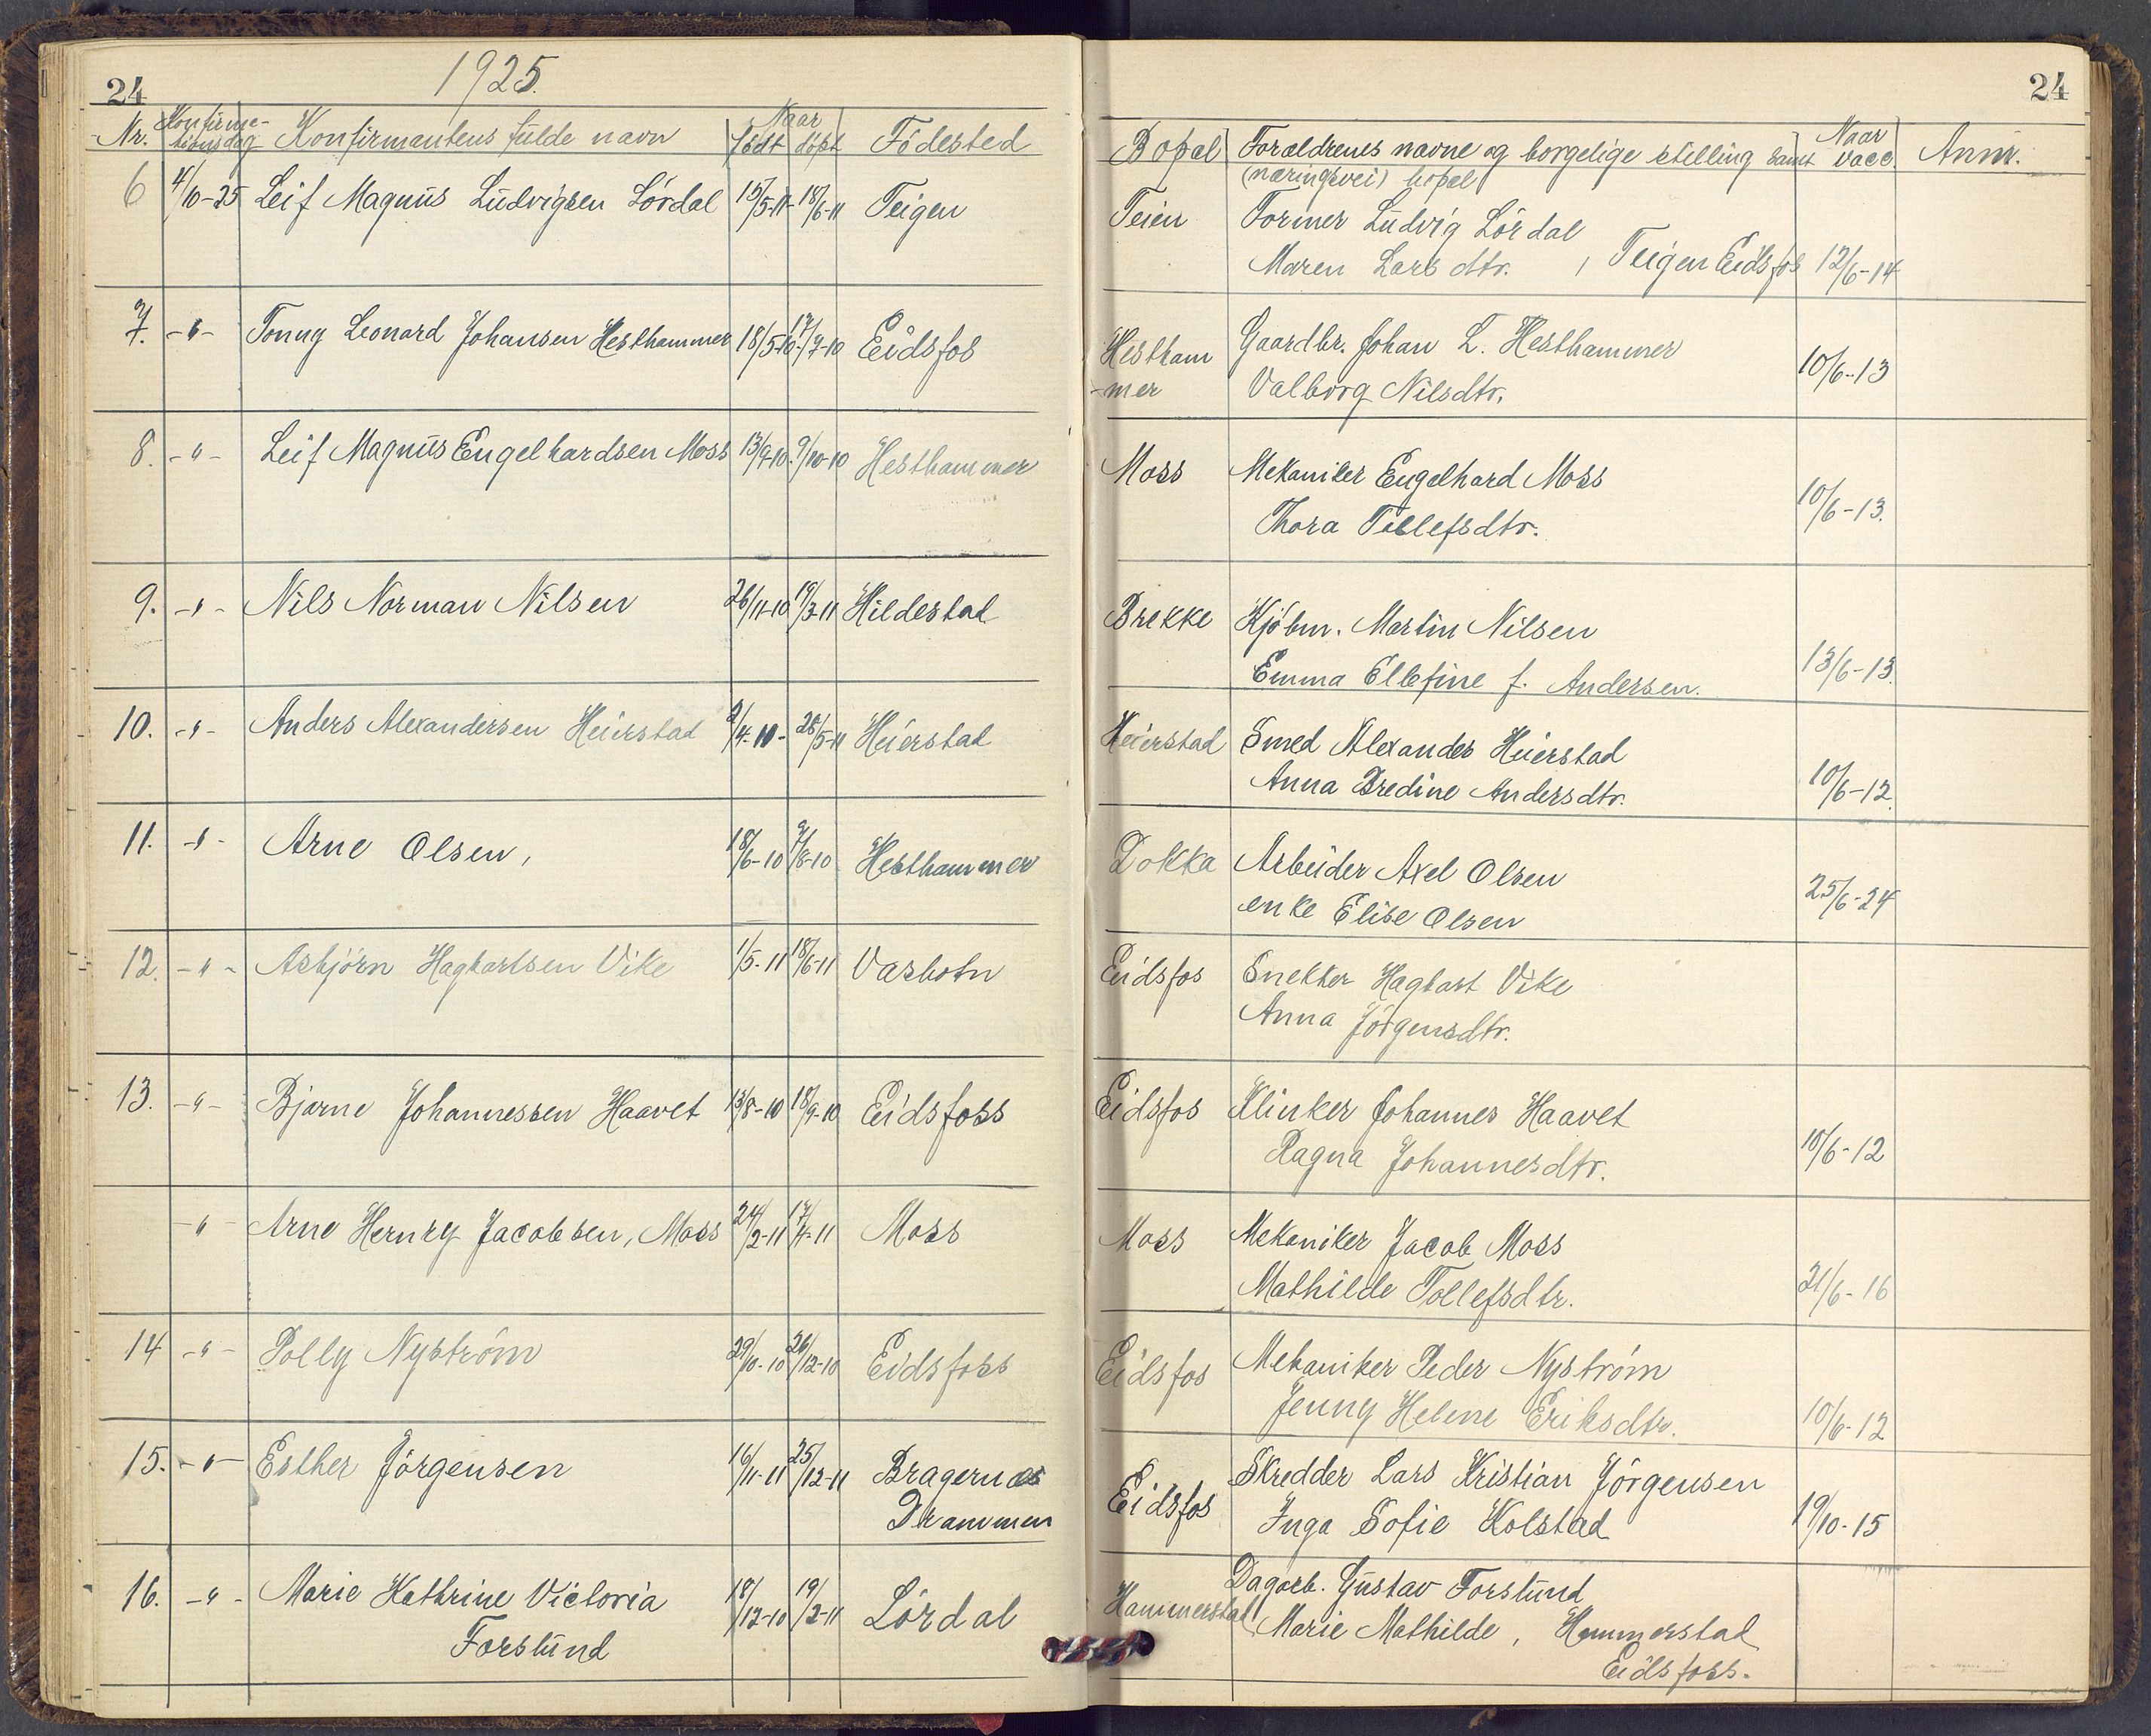 24
1925.
Nr. Konfirma-tionsdag Konfirmantens fulde navn Naar født døpt Födested
6 4/10-25 Leif Magnus Ludvigsen Lördal 15/5-11- 18/6-11 Teigen
7. -"- Tonny Leonard Johansen Hesthammer 18/5-10- 17/7-10 Eidsfos
8. -"- Leif Magnus Engelhardsen Moss 13/9-10. 9/10-10 Hesthammer
9. -"- Nils Norman Nilsen 26/11-10 19/3-11 Hildestad
10. -"- Anders Alexandersen Heierstad 2/4-10- 28/5-11 Heierstad
11. -"- Arne Olsen, 18/6-10 9/8-10 Hesthammer
12. -"- Asbjörn Hagbartsen Vike 1/5-11 18/6-11 Vasbotn
13. -"- Bjarne Johannessen Haavet 13/8-10 18/9-10 Eidsfoss
-"- Arne Hernry Jacobsen, Moss 24/2-11 17/4-11 Moss
14 -"- Polly Nyström 29/10-10 26/12-10 Eidsfoss
15. -"- Esther Jörgensen 16/11-11 25/12-11 Bragernæs
Drammen
16. -"- Marie Kathrine Victoria 18/12-10 19/2-11 Lördal
Forslund
24
Bopæl Forældrenes navne og borgelige stilling samt Naar vacc. Anm.
(næringsvei) bopæl
Teien Former Ludvig Lördal
Maren Larsdtr. , Teigen Eidsfos 12/6-14
Hestham Gaardbr. Johan L. Hesthammer 10/6-13
-mer Valborg Nilsdtr.
Moss Mekaniker Engelhard Moss
Thora Tollefsdtr. 10/6-13.
Brekke Kjöbm. Martin Nilsen
Emma Ellefine f. Andersen. 13/6-13.
Heierstad Smed Alexander Heierstad
Anna Bredine Andersdtr. 10/6-12.
Dokka Arbeider Axel Olsen
enke Elise Olsen 25/6-24
Eidsfos Snekker Hagbart Vike
Anna Jörgensdtr.
Eidsfos Klinker Johannes Haavet
Ragna Johannesdtr. 10/6-12
Moss Mekaniker Jacob Moss
Mathilde Tollefsdtr. 21/6-16
Eidsfos Mekaniker Peder Nyström
Jenny Helene Eriksdtr. 10/6-12
Skredder Lars Kristian Jörgensen
Eidsfos Inga Sofie Kolstad 19/10-15
Dagarb. Gustav Forslund
Hammerstad Marie Mathilde, Hammerstad
Eidsfoss.